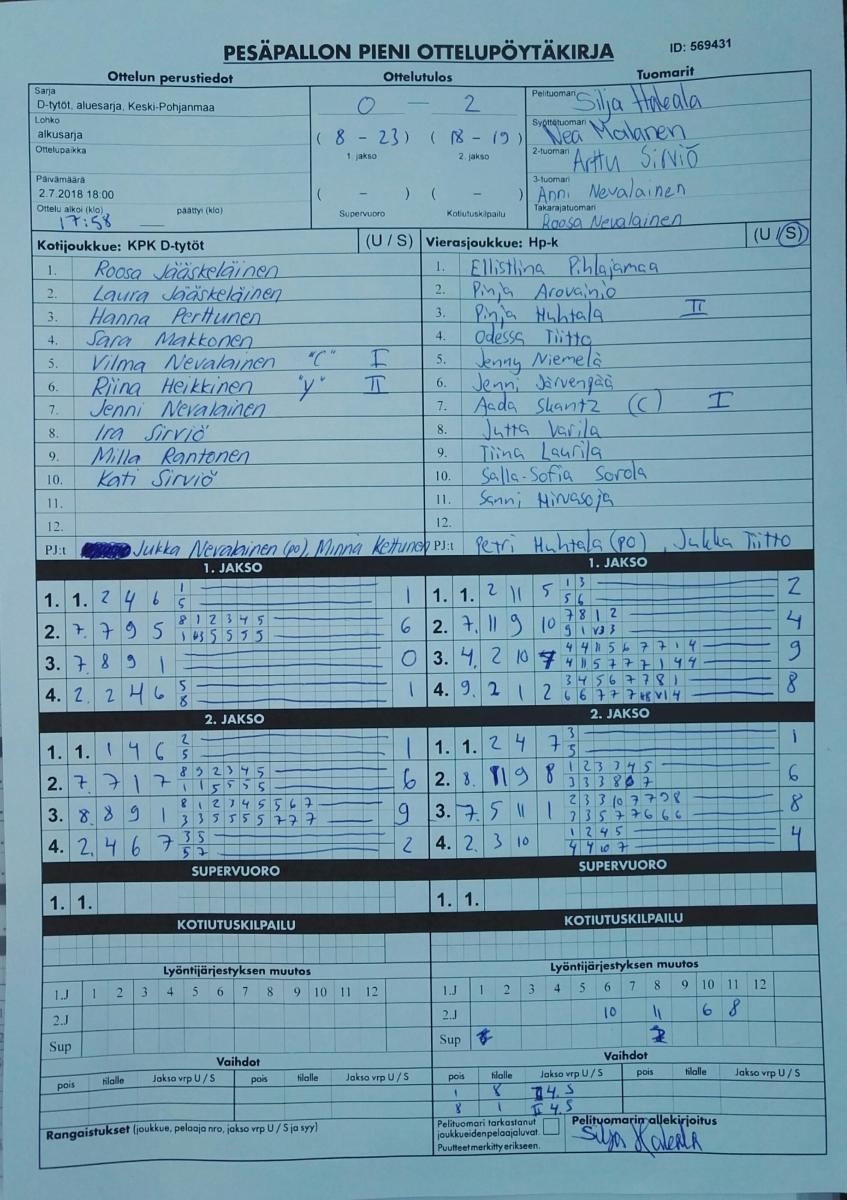 PESÄPALLON PIENI OTTELUPÖYTÄKIRJA
ID: 569431
Ottelun perustiedot
Ottelutulos
Tuomarit
Sarja
D-tytöt, aluesarja, Keski-Pohjanmaa
Lohko
alkusarja
Ottelupaikka
Päivämäärä
2.7.2018 18:00
Ottelu alkoi (klo) päättyi (klo)
17:58
0 — 2
( 8 - 23 ) ( 18 - 19 )
1. jakso 2. jakso
( - ) ( - )
Supervuoro Kotiutuskilpailu
Pelituomari Silja Hakala
Syöttötuomari Nea Malanen
2-tuomari Arttu Sirviö
3-tuomari
Anni Nevalainen
Takarajatuomari
Roosa Nevalainen
Kotijoukkue: KPK D-tytöt (U / S)
1. Roosa Jääskeläinen
2. Laura Jääskeläinen
3. Hanna Perttunen
4. Sara Makkonen
5. Vilma Nevalainen "C" I
6. Riina Heikkinen "V" II
7. Jenni Nevalainen
8. Ira Sirviö
9. Milla Rantonen
10. Kati Sirviö
11.
12.
PJ:t Jukka Nevalainen (po), Minna Kettunen
Vierasjoukkue: Hp-k (U / S)
1. Ellistiina Pihlajamaa
2. Pinja Arovainio
3. Pinja Huhtala II
4. Odessa Tiitto
5. Jenny Niemelä
6. Jenni Järvenpää
7. Aada Skantz (C) I
8. Jutta Varila
9. Tiina Laurila
10. Salla-Sofia Sorola
11. Sanni Hirvasoja
12.
PJ:t Petri Huhtala (PO), Jukka Tiitto
1. JAKSO
1. 1. 2 4 6 1 1
5
2. 7. 7 9 5 8 1 2 3 4 5 6
3. 7. 8 9 1 0
4. 2. 2 4 6 5 1
8
2. JAKSO
1. 1. 1 4 6 2 1
5
2. 7. 7 1 7 8 9 2 3 4 5 6
1 1 5 5 5 5
3. 8. 8 9 1 8 1 2 3 4 5 5 6 7 9
3 3 5 5 5 5 7 7 7
4. 2. 4 6 7 3 5 2
5 7
SUPERVUORO
1. 1.
KOTIUTUSKILPAILU
Lyöntijärjestyksen muutos
1.J 1 2 3 4 5 6 7 8 9 10 11 12
2.J
Sup
Vaihdot
pois tilalle Jakso vrp U / S pois tilalle Jakso vrp U / S
Rangaistukset (joukkue, pelaaja nro, jakso vrp U / S ja syy)
1. JAKSO
1. 1. 2 11 5 1 3 2
5 6
2. 7. 11 9 10 7 8 1 2 4
3. 4. 2 10 7 4 4 11 5 6 7 7 1 4 9
4 11 5 7 7 7 1 4 4
4. 9. 2 1 2 3 4 5 6 7 7 8 1 8
2. JAKSO
1. 1. 2 4 7 3 1
5
2. 8. 11 9 8 1 2 3 3 4 5 6
3. 7. 5 11 1 2 3 3 10 7 7 9 8 8
3 3 5 7 7 6 6 6
4. 2. 3 10 1 2 4 5 4
4 4 10 7
SUPERVUORO
1. 1.
KOTIUTUSKILPAILU
Lyöntijärjestyksen muutos
1.J 1 2 3 4 5 6 7 8 9 10 11 12
2.J 10 11 6 8
Sup
Vaihdot
pois tilalle Jakso vrp U / S pois tilalle Jakso vrp U / S
1 8 II 4. S
8 1 II 4. S
Pelituomari tarkastanut
joukkueiden pelaajaluvat.
Puutteet merkitty erikseen.
Pelituomarin allekirjoitus
Silja Hakala